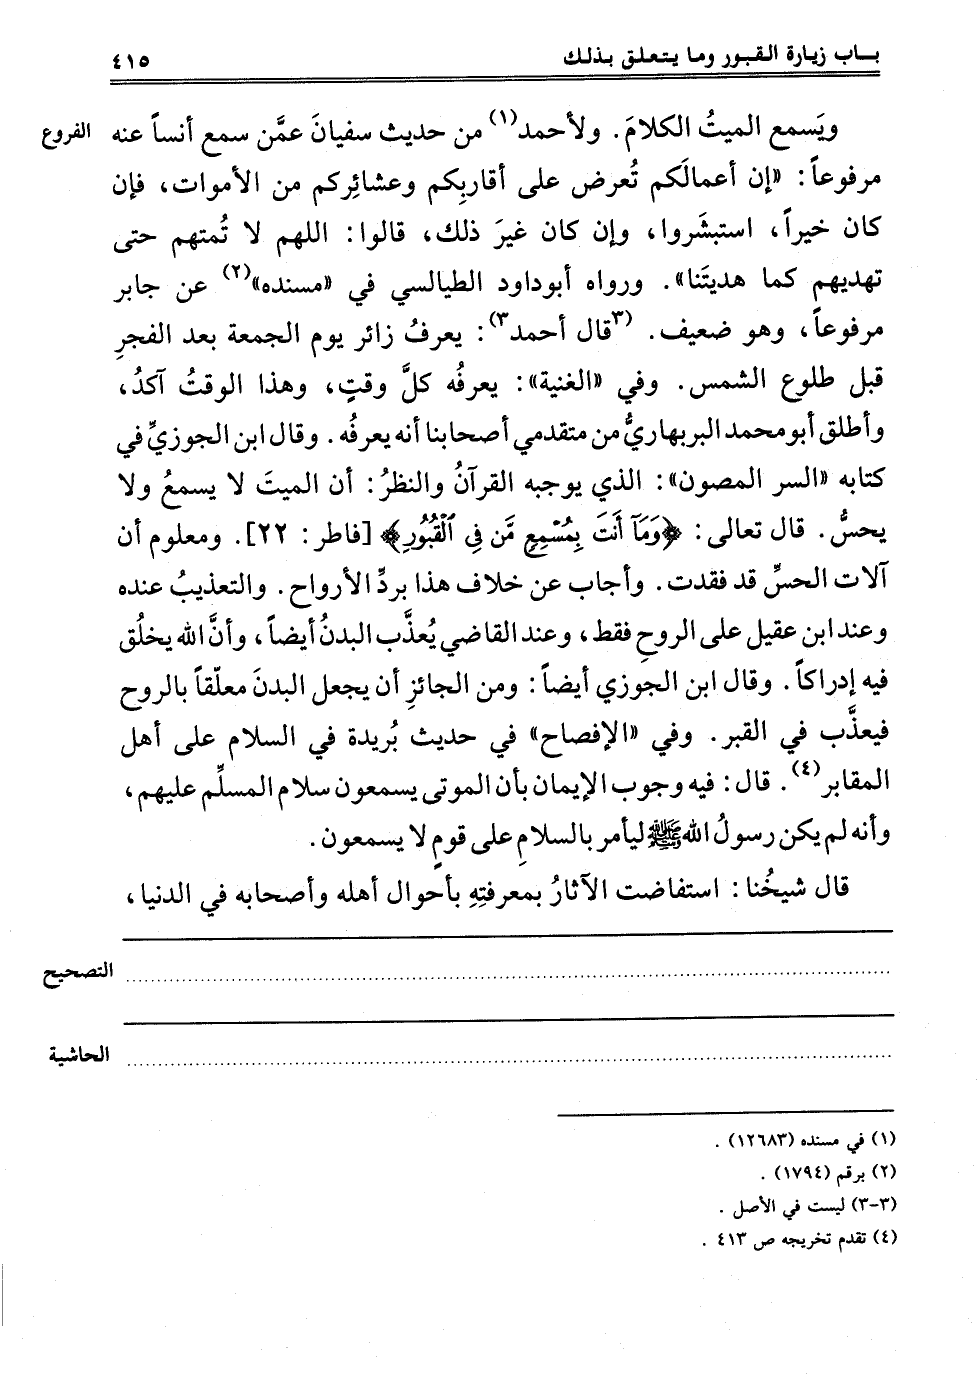 بــاب زيارة القبور وما يتعلق بذلك ٤١٥
ويَسمع الميتُ الكلامَ. ولأحمد(١) من حديث سفيانَ عمَّن سمع أنساً عنه الفروع
مرفوعاً: «إن أعمالَكم تُعرض على أقاربِكم وعشائِركم من الأموات، فإن
كان خيراً، استبشَروا، وإن كان غيرَ ذلك، قالوا: اللهم لا تُمتهم حتى
تهديهم كما هديتَنا». ورواه أبوداود الطيالسي في «مسنده»(٢) عن جابر
مرفوعاً، وهو ضعيف. (٣قال أحمد٣): يعرفُ زائر يوم الجمعة بعد الفجرِ
قبل طلوع الشمس. وفي «الغنية»: يعرفُه كلَّ وقتٍ، وهذا الوقتُ آكدُ،
وأطلق أبومحمد البربهاريُّ من متقدمي أصحابنا أنه يعرفُه. وقال ابن الجوزيِّ في
كتابه «السر المصون»: الذي يوجبه القرآنُ والنظرُ: أن الميتَ لا يسمعُ ولا
يحسُّ. قال تعالى: ﴿وَمَآ أَنتَ بِمُسْمِعٍ مَّن فِى ٱلْقُبُورِ﴾ [فاطر: ٢٢]. ومعلوم أن
آلات الحسِّ قد فقدت. وأجاب عن خلاف هذا بردِّ الأرواح. والتعذيبُ عنده
وعند ابن عقيل على الروحِ فقط، وعند القاضي يُعذَّب البدنُ أيضاً، وأنَّ الله يخلُق
فيه إدراكاً. وقال ابن الجوزي أيضاً: ومن الجائزِ أن يجعل البدنَ معلّقاً بالروح
فيعذَّب في القبر. وفي «الإفصاح» في حديث بُريدة في السلام على أهل
المقابر(٤). قال: فيه وجوب الإيمان بأن الموتى يسمعون سلام المسلِّم عليهم،
وأنه لم يكن رسولُ الله ﷺ ليأمر بالسلامِ على قومٍ لا يسمعون.
قال شيخُنا: استفاضت الآثارُ بمعرفتِهِ بأحوال أهله وأصحابه في الدنيا،
التصحيح
الحاشية
(١) في مسنده (١٢٦٨٣).
(٢) برقم (١٧٩٤).
(٣-٣) ليست في الأصل.
(٤) تقدم تخريجه ص ٤١٣.